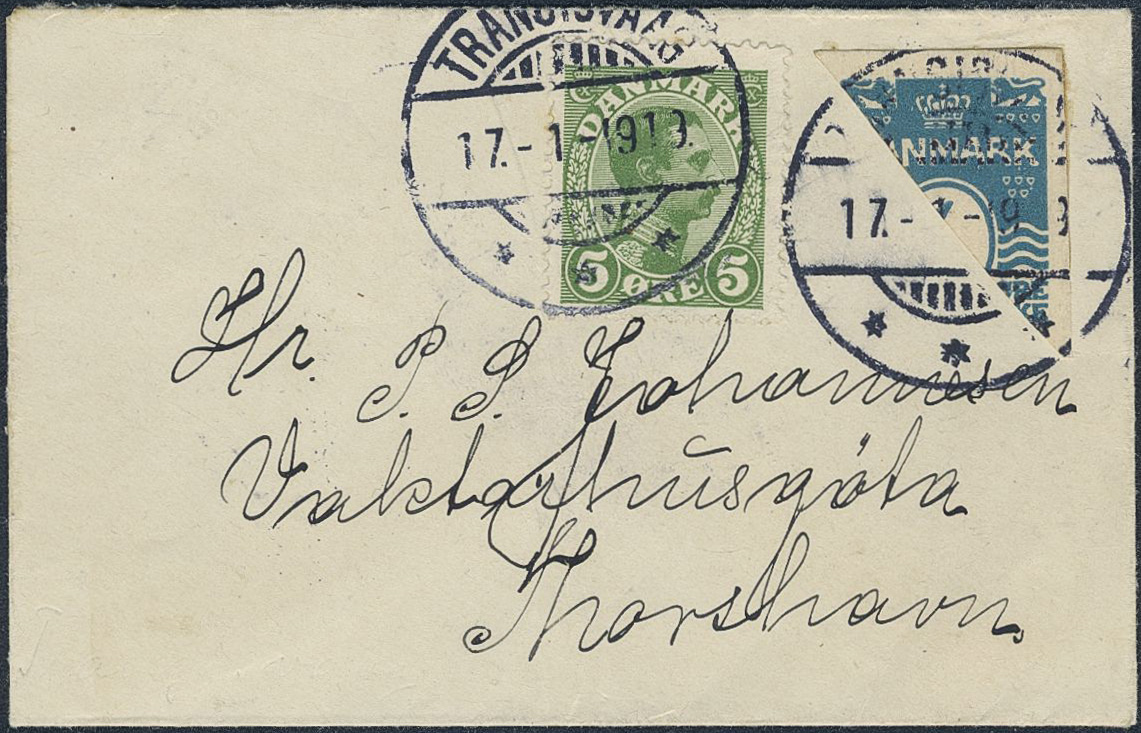 TRANGISVAAG
17.-1-1919.
DANMARK
5 ØRE 5
ANMARK
17.-1-19 9
Hr. P. S. Johannesen
Vaktarhusgöta
Thorshavn.